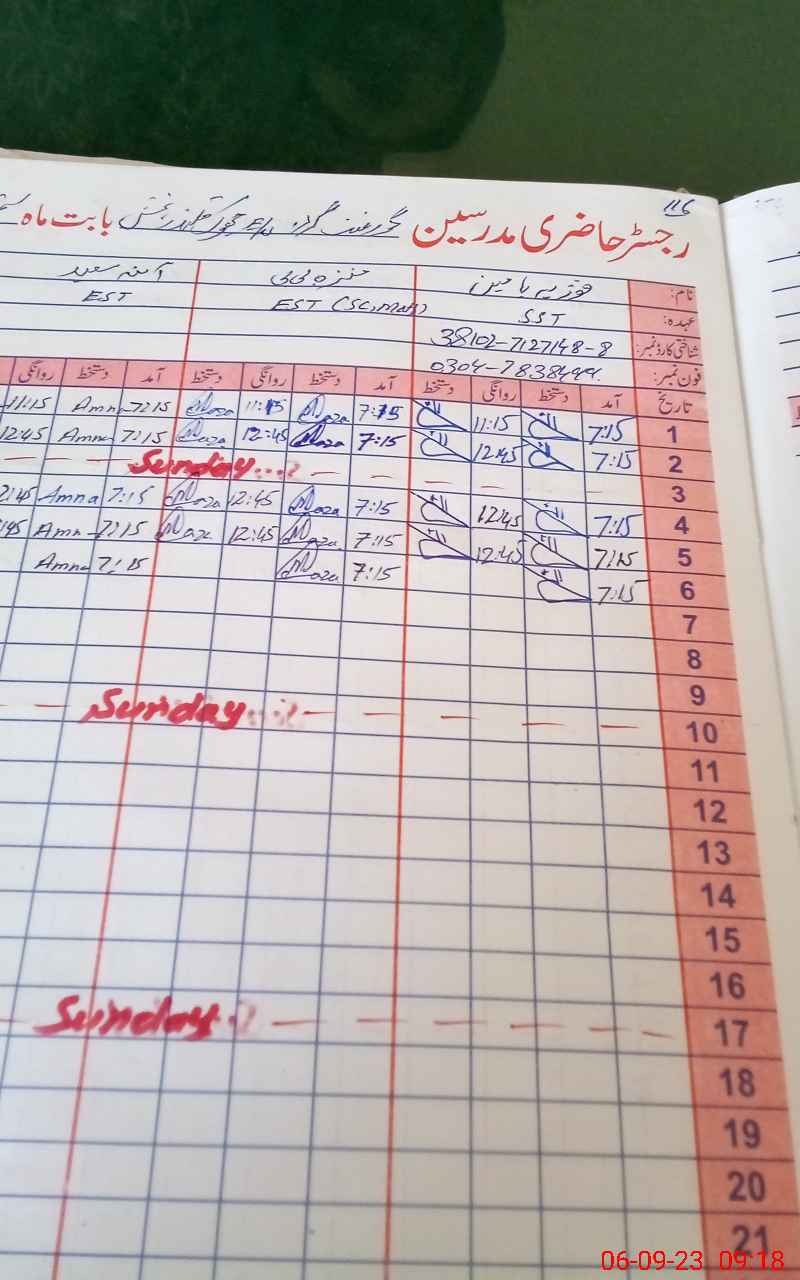 116
رجسٹر حاضری مدرسین گورنمنٹ گرلز بابت ماہ
نام: فوزیہ یامین منزہ بی بی آمنہ سعید
عہدہ: SST EST (SC, Math) EST
شناختی کارڈ نمبر: 38102-7127148-8
فون نمبر:
تاریخ آمد دستخط روانگی دستخط آمد دستخط روانگی دستخط آمد دستخط روانگی
1 7:15 11:15 7:15 11:15 7:15 Amna 11:15
2 7:15 12:45 7:15 12:45 7:15 Amna 12:45
3 Sunday
4 7:15 12:45 7:15 12:45 7:15 Amna
5 7:15 12:45 7:15 12:45 7:15
6 7:15 7:15 7:15 Amna
7
8
9
10 Sunday
11
12
13
14
15
16
17 Sunday
18
19
20
21
06-09-23 09:18